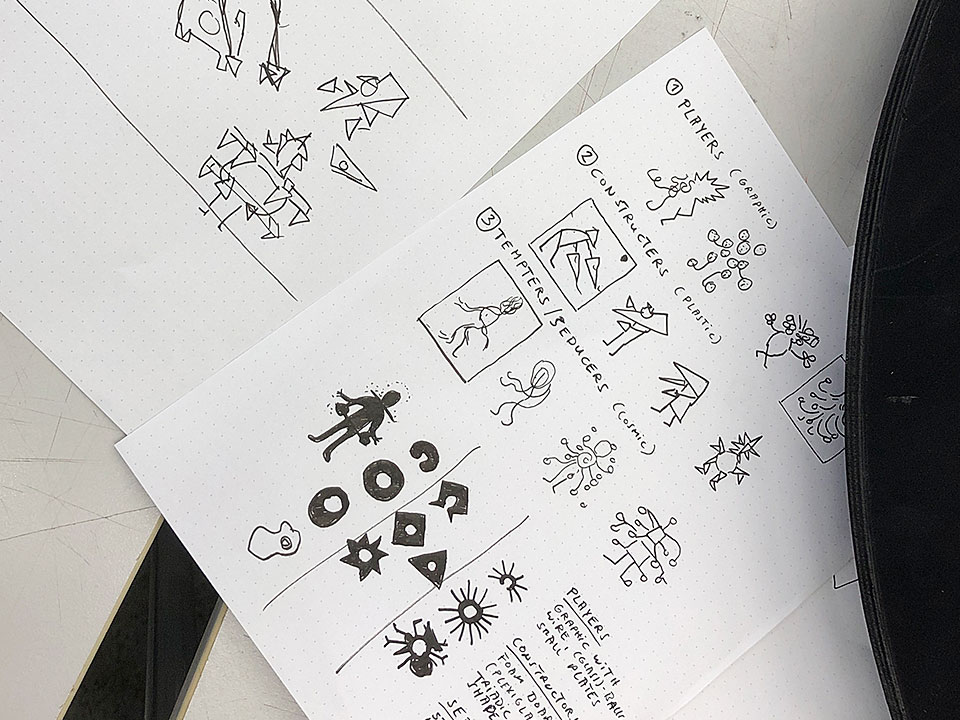 ① PLAYERS (GRAPHIC)
② CONSTRUCTERS (PLASTIC)
③ TEMPTERS/SEDUCERS (COSMIC)
PLAYERS
GRAPHIC WITH
WIRE,
SMALL PLATES
CONSTRUCTOR
FOAM BOAR
(PLEXIGLA
TRIADIC
SHAPE
SE